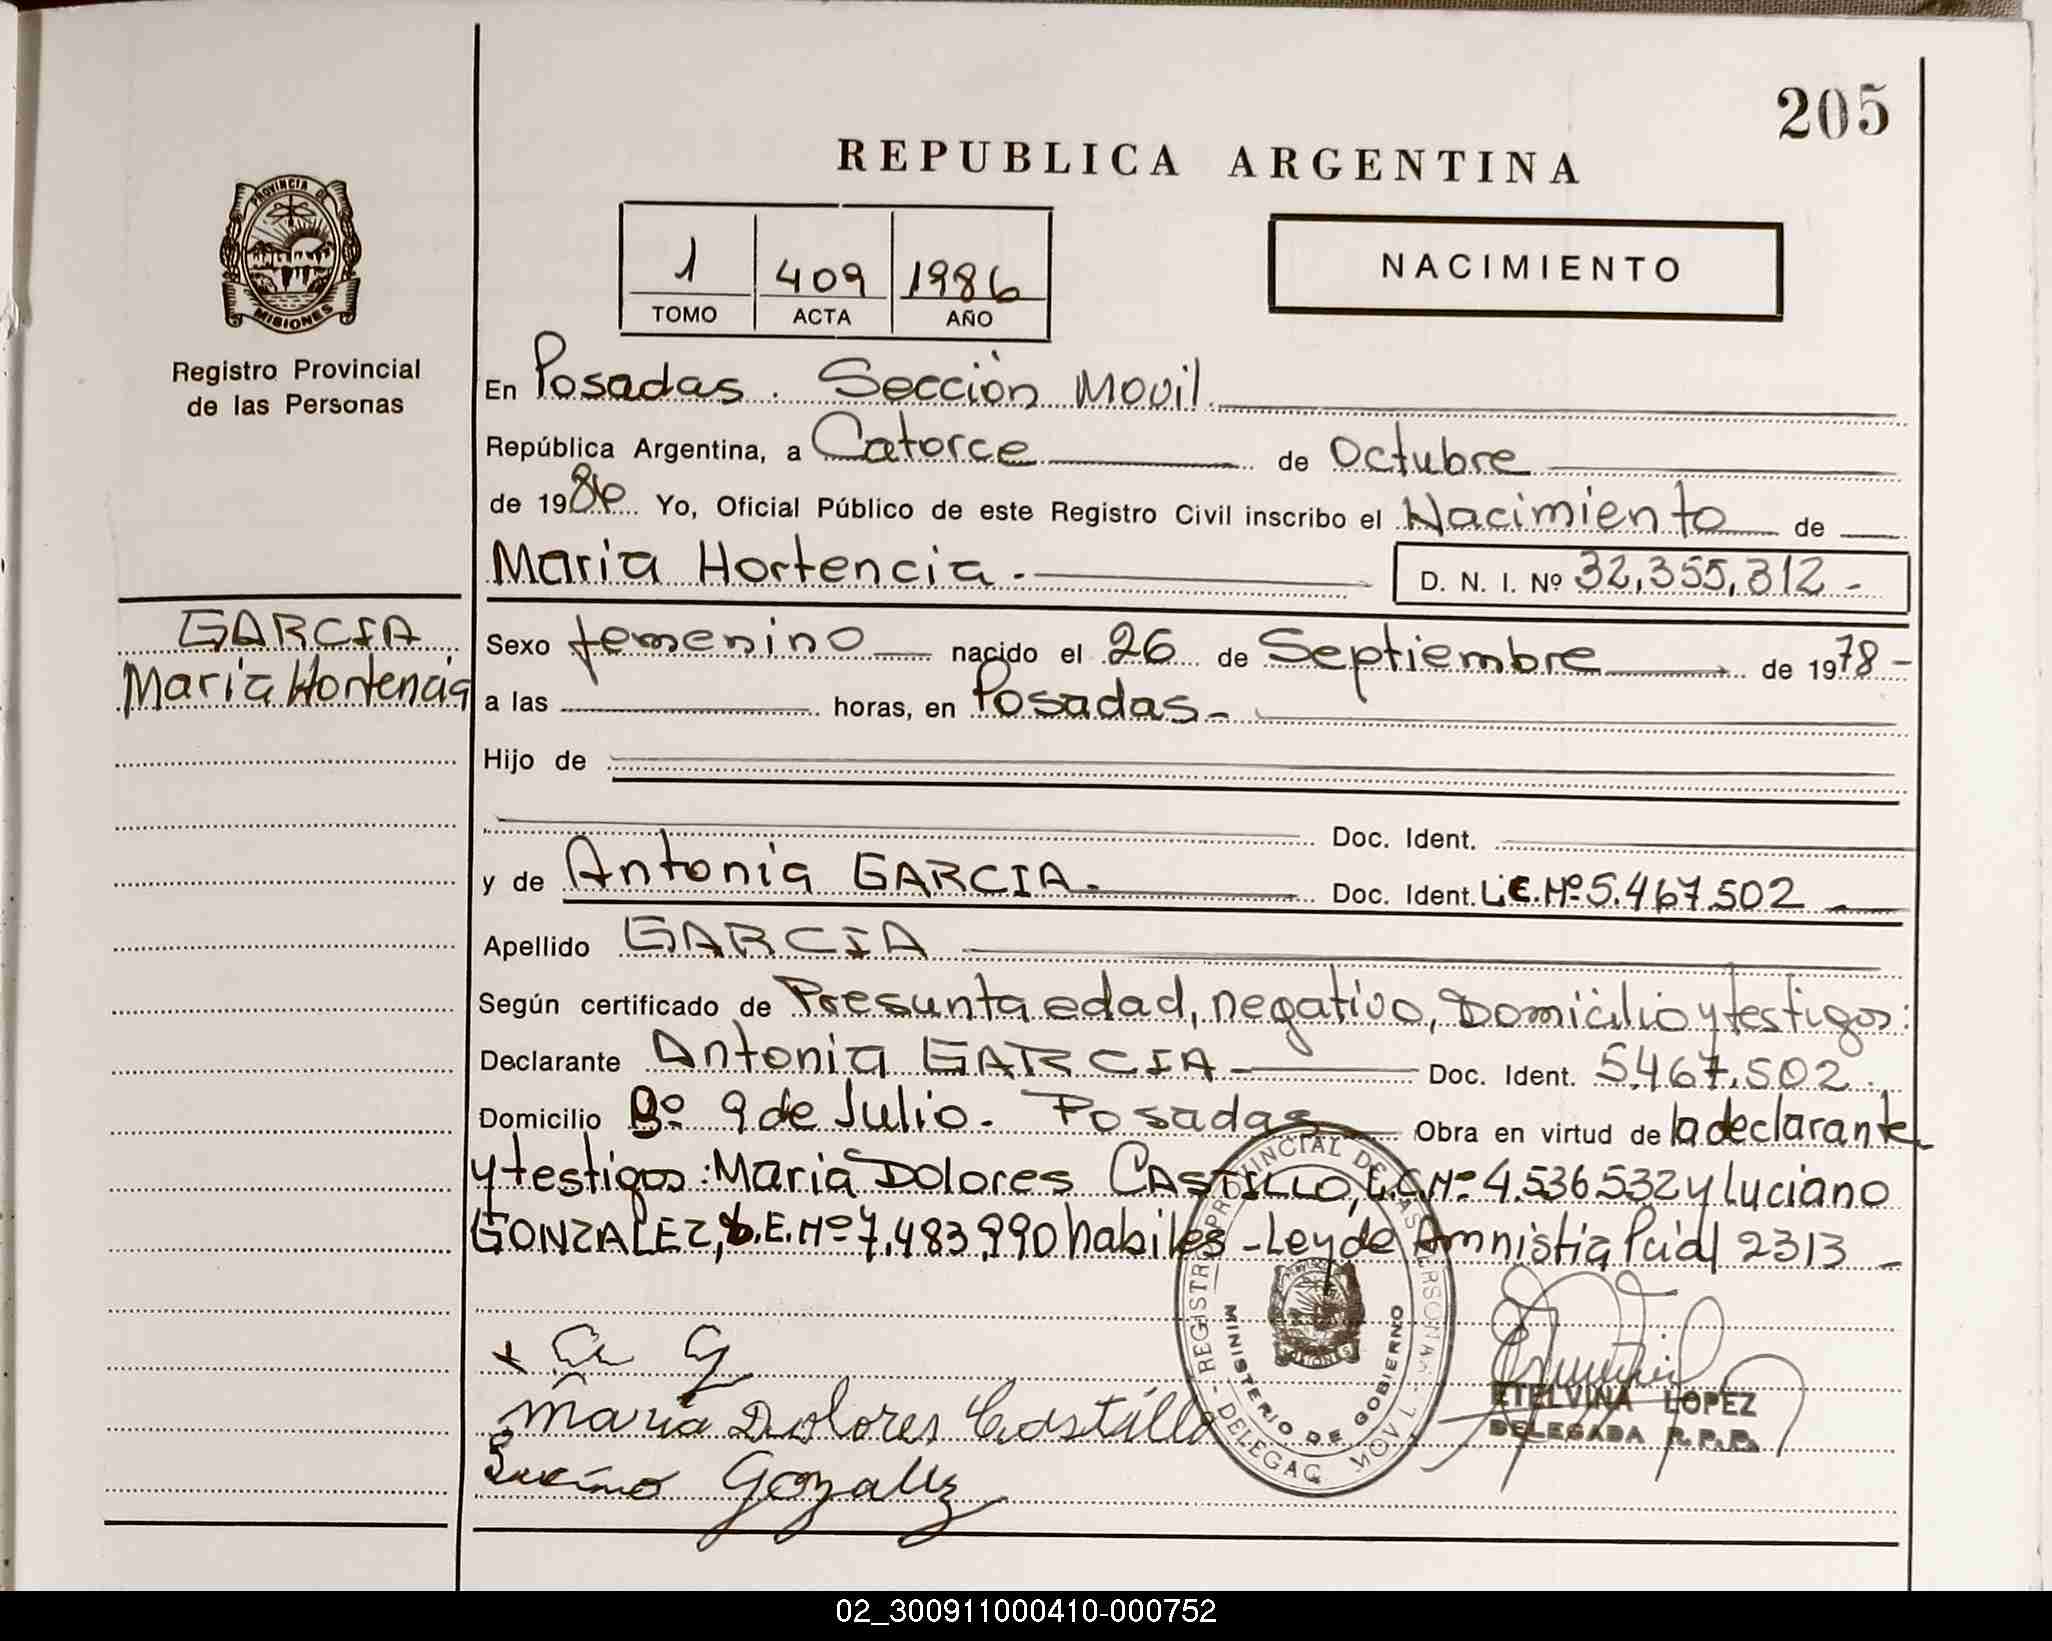 205
REPUBLICA ARGENTINA
PROVINCIA DE
MISIONES
Registro Provincial
de las Personas
1 409 1986
TOMO ACTA AÑO
NACIMIENTO
En Posadas. Sección Movil.
República Argentina, a Catorce de Octubre
de 1986 Yo, Oficial Público de este Registro Civil inscribo el Nacimiento de
Maria Hortencia.- D. N. I. Nº 32,355,312-
GARCIA
Maria Hortencia
Sexo femenino nacido el 26 de Septiembre de 1978-
a las horas, en Posadas-
Hijo de
Doc. Ident.
y de Antonia GARCIA. Doc. Ident. L.C.Nº 5.467.502
Apellido GARCIA
Según certificado de Presunta edad, negativo, Domicilio y testigos:
Declarante Antonia GARCIA Doc. Ident. 5.467.502.
Domicilio Bº 9 de Julio. Posadas Obra en virtud de la declarante
y testigos: Maria Dolores CASTILLO, L.C.Nº 4.536.532 y Luciano
GONZALEZ, L.E.Nº 7.483.990 habiles - Ley de Amnistia Pcial 2313
REGISTRO PROVINCIAL DE LAS PERSONAS
MINISTERIO DE GOBIERNO
DELEGAC MOVIL
Maria Dolores Castillo
Gozallz
ETELVINA LOPEZ
DELEGADA R.P.P.
02_300911000410-000752